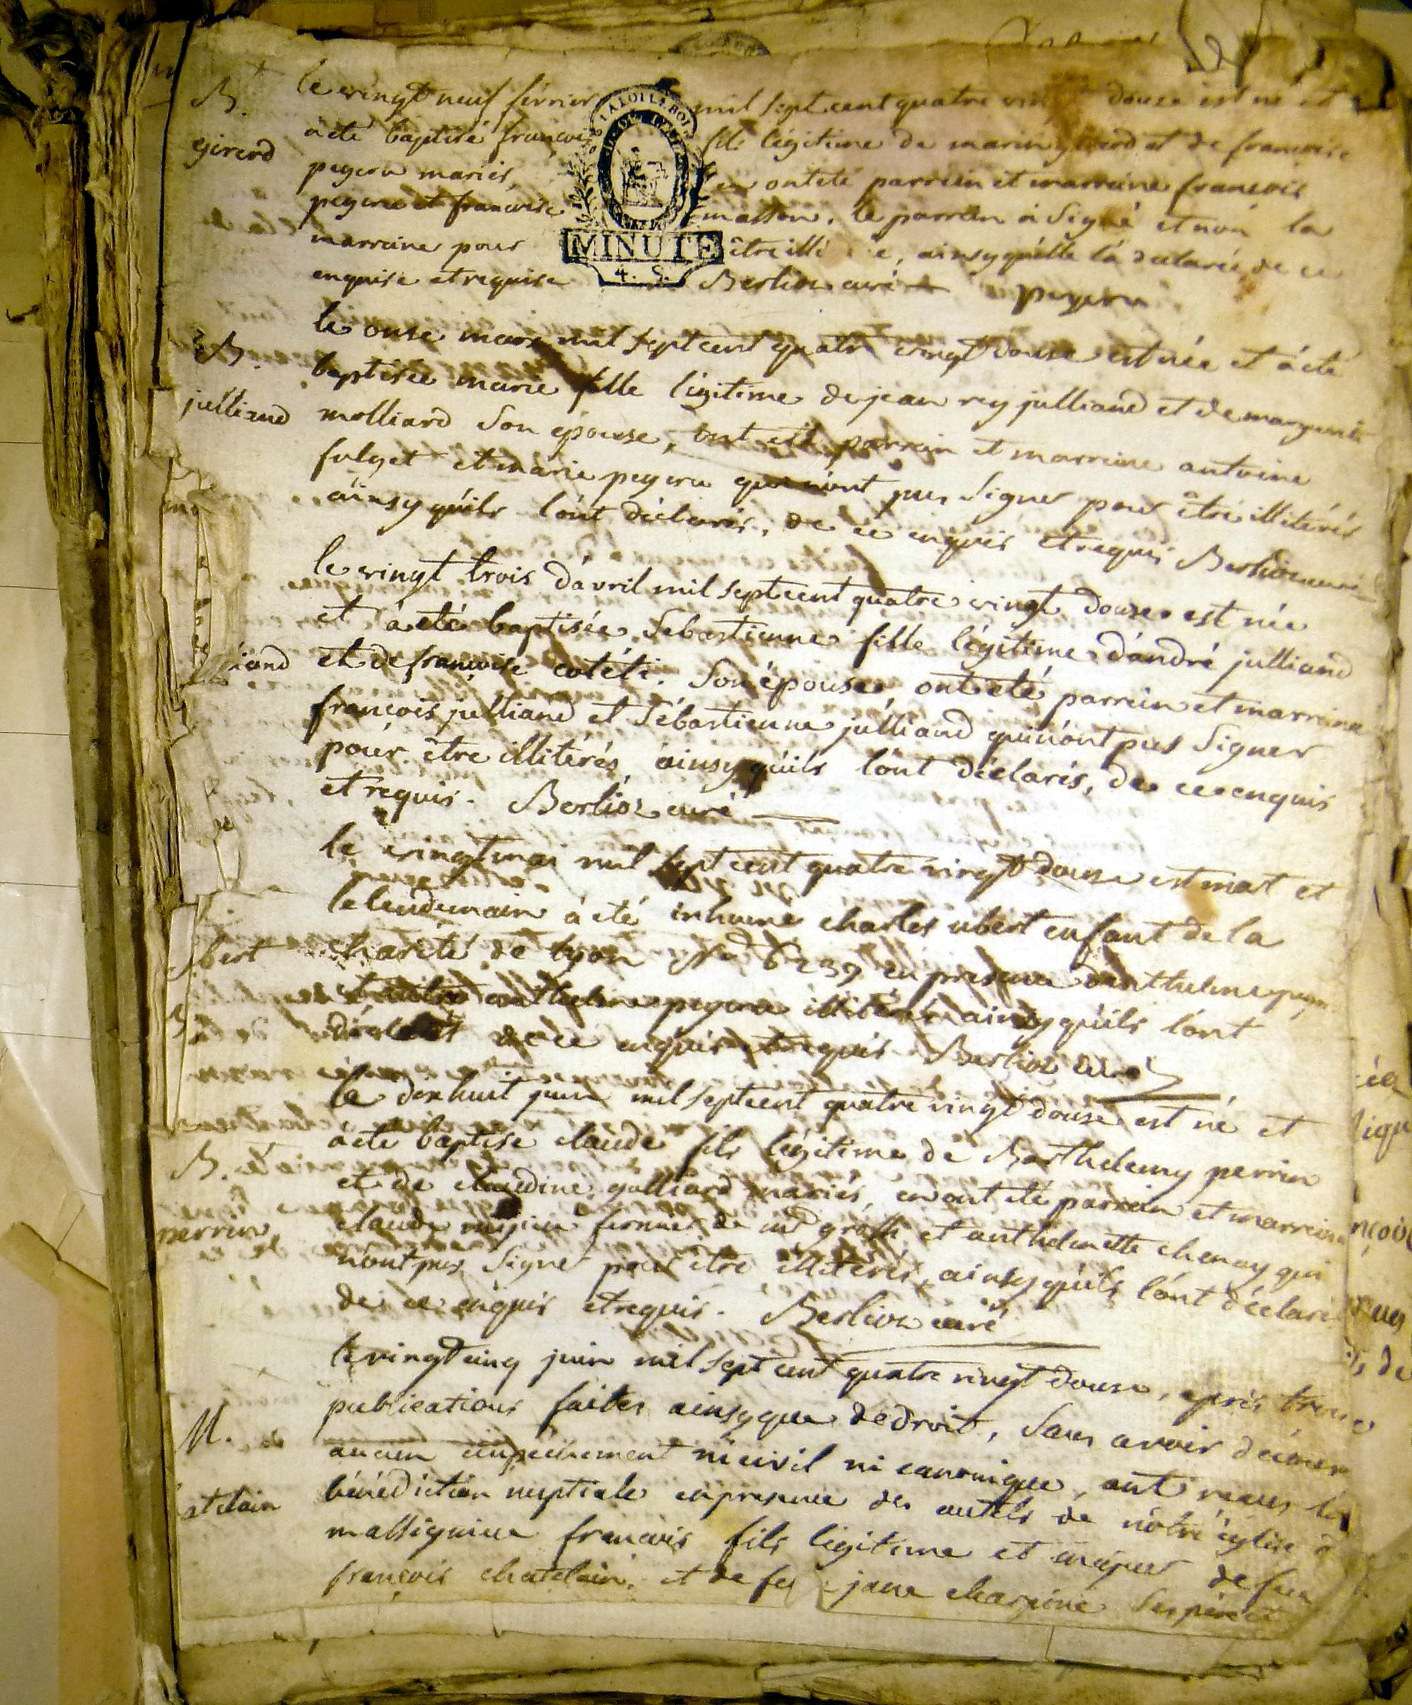 B.
girerd
le vingt neuf fevrier mil sept cent quatre vingt douze est né et
à été baptisé françois fils légitime de marin girerd et de francoise
pegeru mariés, en ont été parrein et marreine francois
pegeru et francoise masson, le parrein à signé et non la
marreine pour être illi e, ainsy qu'elle l'a declarée de ce
enquise et requise Berlioz curé pegeru
LA LOI LE ROI
MINUTE
4. S.
B.
julliand
le onse mars mil sept cent quatre vingt douse est née et à été
baptisée marie fille légitime de jean rey julliand et de marguerite
molliard son épouse, ont été parrein et marreine antoine
fulget et marie pegeru qui n'ont pas signer pour être illitérés
ainsy qu'ils l'ont déclarés, de ce enquis et requis Berlioz curé
le vingt trois d'avril mil sept cent quatre vingt douse est née
et à été baptisée Sebastienne fille légitime d'andré julliand
iand
et de françoise cotéti. Son épouse ont été parrein et marreine
francois julliand et Sébastienne julliand qui n'ont pas signer
pour être illitérés ainsy qu'ils l'ont déclarés, de ce enquis
et requis. Berlioz curé
le vingt mai mil sept cent quatre vingt douse est mort et
le lendemain à été inhumé charles ubert enfant de la
bert
charité de lyon N° 6239 en presence d'anthelme pegeru
et autre anthelme pegeru illitérés ainsy qu'ils l'ont
déclarés de ce enquis et requis Berlioz curé
le dix huit juin mil sept cent quatre vingt douse est né et
à été baptisé claude fils légitime de Barthelemy perrin
B.
et de claudine galliard mariés, en ont été parrein et marreine
perrin
claude fermier de et anthelmette chenay qui
n'ont pas signer pour être illitérés, ainsy qu'ils l'ont déclaré
de ce enquis et requis. Berlioz curé
le vingt cinq juin mil sept cent quatre vingt douse, après trois
publications faites ainsy que de droit, sans avoir découvert
M.
aucun empêchement ni civil ni canonique, ont reçus la
atelain
bénédiction nuptiale en presence des autels de nôtre église de
massignieu francois fils légitime et majeur de feu
françois chatelain, et de feu jane charpine ses père et